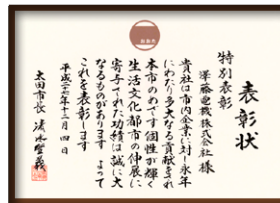 表彰状
特別表彰
澤藤電機株式会社 様
貴社は市内企業に対し永年
にわたり多大なる貢献をされ
本市のめざす個性が輝く
生活文化都市の伸展に
寄与された功績は誠に大
なるものがあります よって
これを表彰します
平成二十六年十二月四日
太田市長 清水聖義